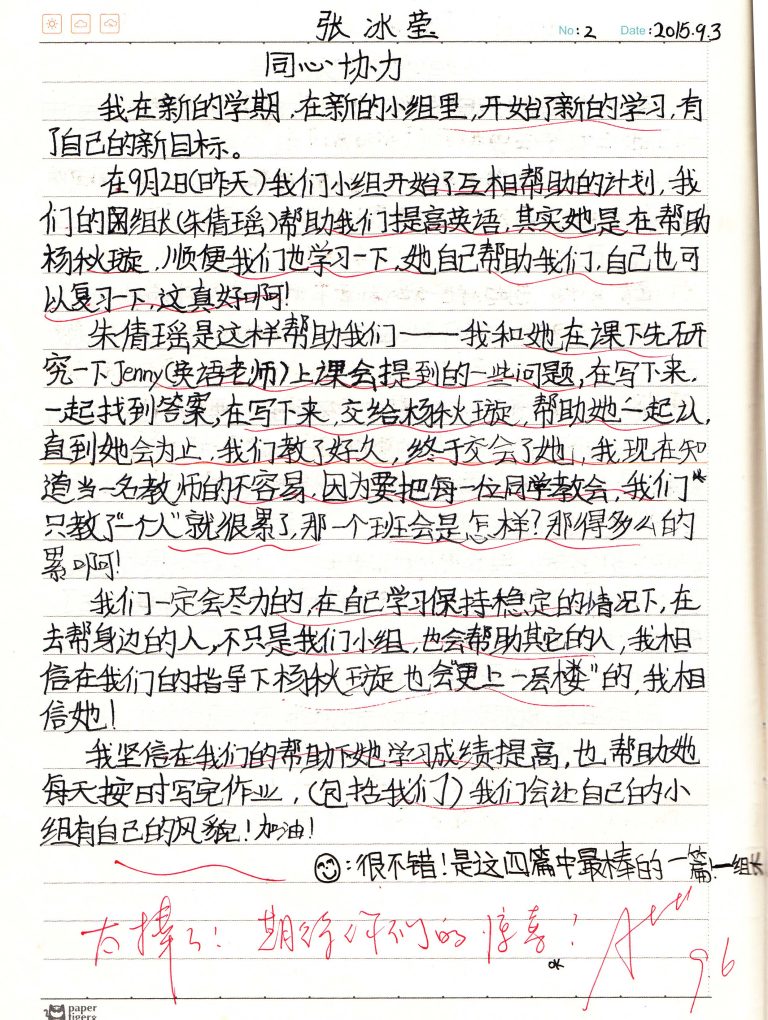 张冰莹
No: 2 Date: 2015.9.3
同心协力
我在新的学期,在新的小组里,开始了新的学习,有
了自己的新目标。
在9月2日(昨天)我们小组开始了互相帮助的计划,我
们的组长(朱倩瑶)帮助我们提高英语,其实她是在帮助
杨秋璇,顺便我们也学习一下,她自己帮助我们,自己也可
以复习一下,这真好啊!
朱倩瑶是这样帮助我们——我和她在课下先研
究一下Jenny(英语老师)上课会提到的一些问题,在写下来,
一起找到答案,在写下来,交给杨秋璇,帮助她一起认,
直到她会为止,我们教了好久,终于交会了她,我现在知
道当一名教师的不容易,因为要把每一位同学教会,我们
只教了“一个人”就很累了,那一个班会是怎样?那得多么的
累啊!
我们一定会尽力的,在自己学习保持稳定的情况下,在
去帮身边的人,不只是我们小组,也会帮助其它的人,我相
信在我们的指导下杨秋璇也会“更上一层楼”的,我相
信她!
我坚信在我们的帮助下她学习成绩提高,也帮助她
每天按时写完作业,(包括我们)我们会让自己的小
组有自己的风貌!加油!
:很不错!是这四篇中最棒的一篇!—组长
太棒了!期待你们的惊喜!
OK
A+++
96
paper
tigers